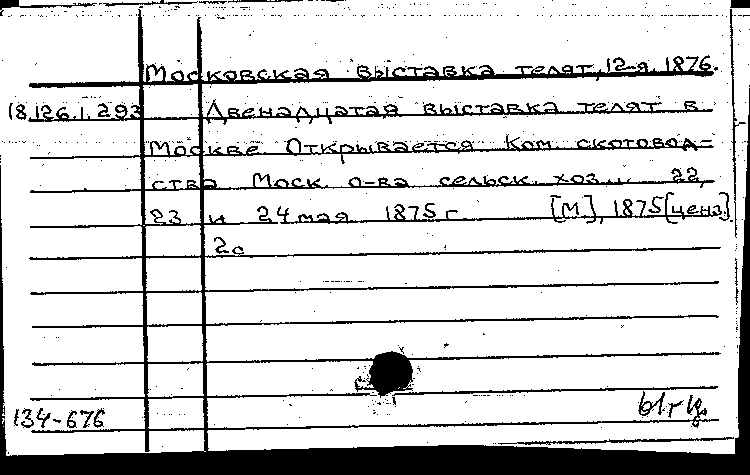 Московская выставка телят, 12-я. 1876.
18.126.1.293 Двенадцатая выставка телят в
Москве. Открывается Ком. скотовод-
ства Моск. о-ва сельск. хоз... 22,
23 и 24 мая 1875 г. [М], 1875 [ценз.]
2с
134-676